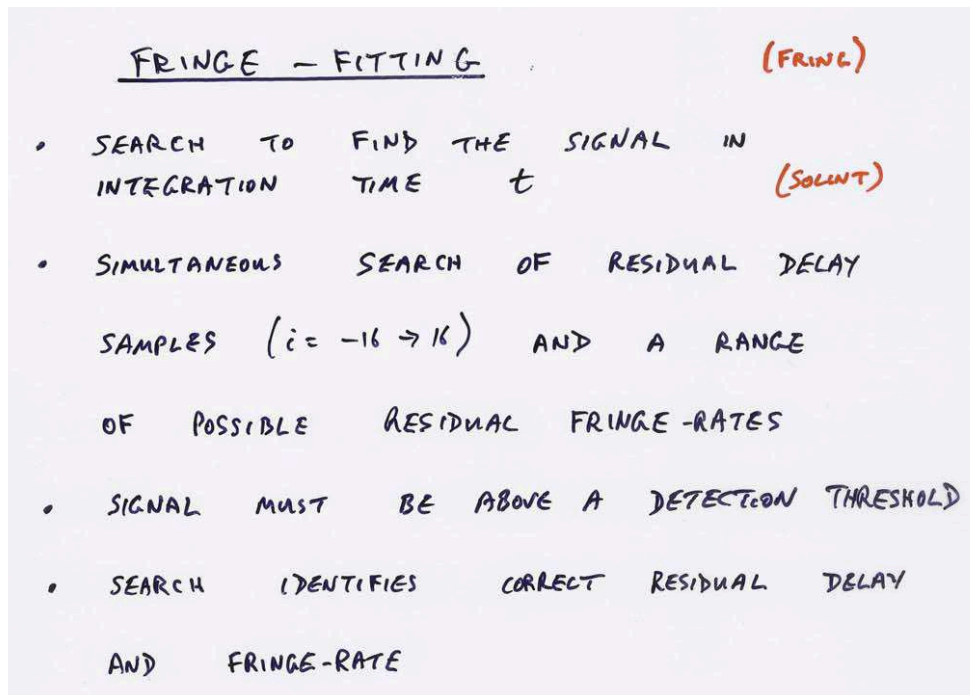 FRINGE - FITTING (FRING)
• SEARCH TO FIND THE SIGNAL IN
INTEGRATION TIME t (SOLINT)
• SIMULTANEOUS SEARCH OF RESIDUAL DELAY
SAMPLES (i = -16 → 16) AND A RANGE
OF POSSIBLE RESIDUAL FRINGE-RATES
• SIGNAL MUST BE ABOVE A DETECTION THRESHOLD
• SEARCH IDENTIFIES CORRECT RESIDUAL DELAY
AND FRINGE-RATE